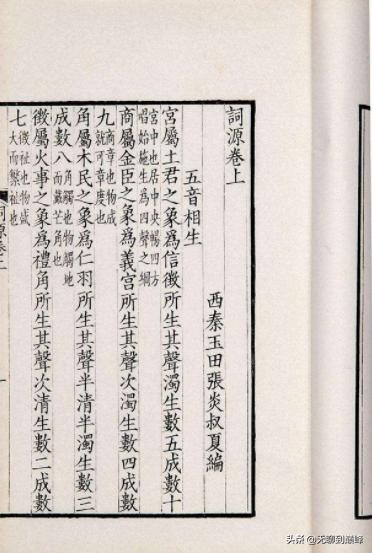 詞源卷上
西秦玉田張炎叔夏編
五音相生
宮屬土君之象爲信徵所生其聲濁生數五成數十
宮中也居中央暢四方
唱始施生爲四聲之綱
商屬金臣之象爲義宮所生其聲次濁生數四成數
九商章也物成
就可章度也
角屬木民之象爲仁羽所生其聲半清半濁生數三
成數八角觸也物觸地
而戴芒角也
徵屬火事之象爲禮角所生其聲次清生數二成數
七徵祉也物盛
大而繁祉也
頭条 @无聊到巅峰